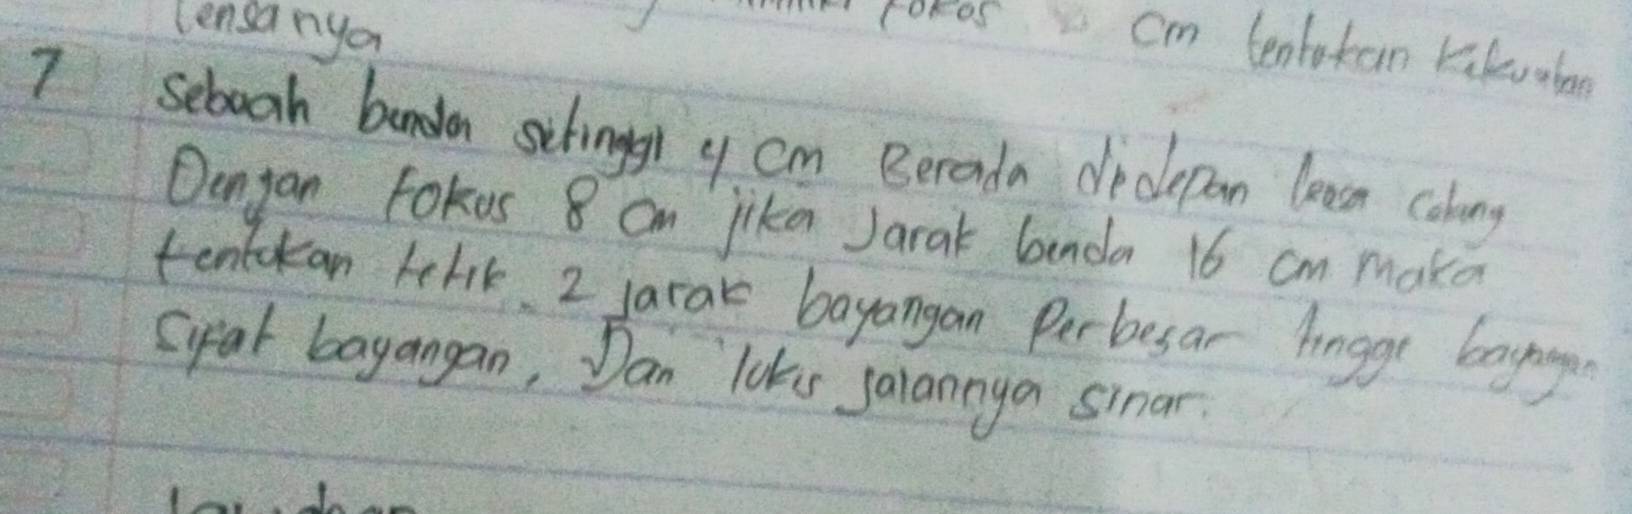 lensanya
fokos cm tentukan
7 Sebuah benda setinggi 4 cm Berada didepan lensa cekung
Dengan fokus 8 cm jika Jarak benda 16 cm maka
tentukan letak 2 jarak bayangan Perbesar tinggi bayangan
Sifat bayangan, Dan lukis jalannya sinar.